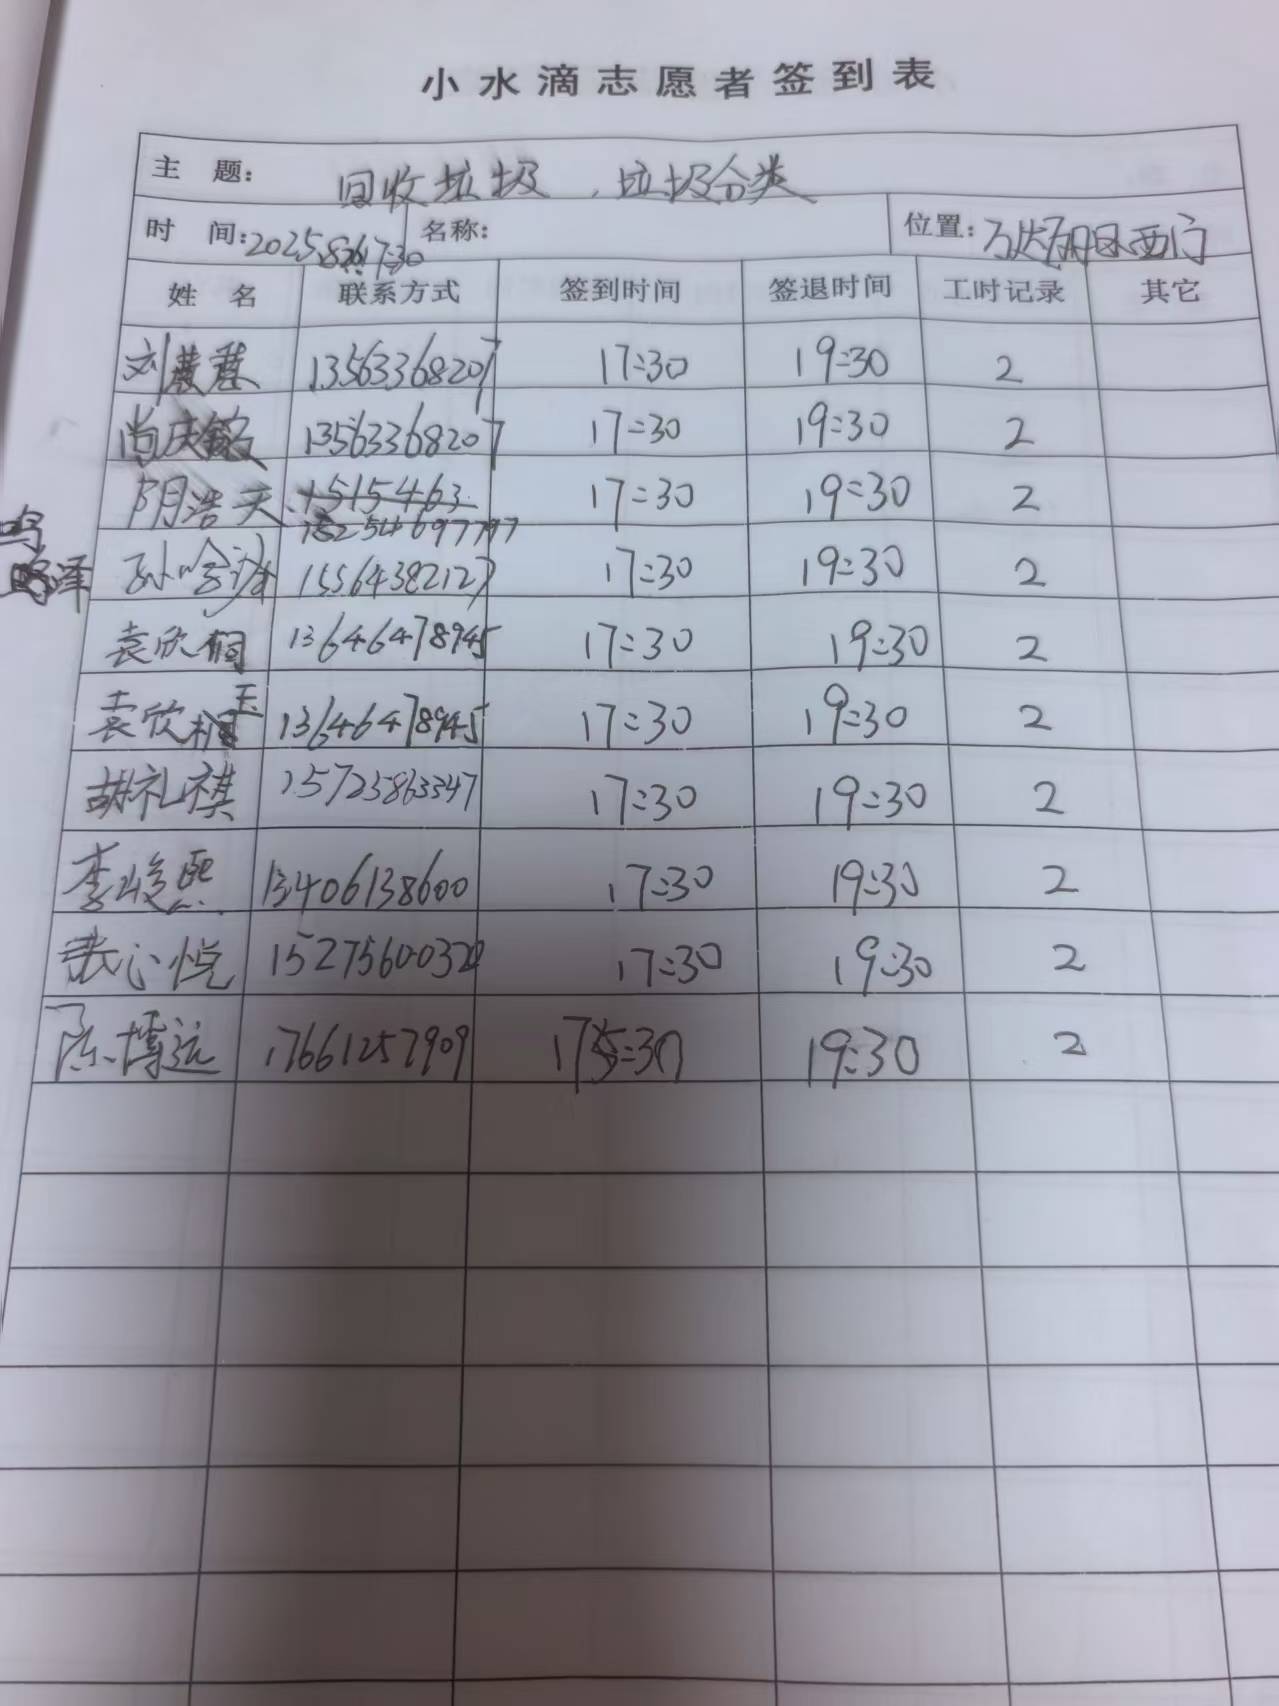 小水滴志愿者签到表
主 题： 回收垃圾，垃圾分类
时 间：2025.8.26 17:30 名称： 位置：万达 西门
姓 名 联系方式 签到时间 签退时间 工时记录 其它
刘 慧 13563368207 17:30 19:30 2
尚庆 13563368207 17:30 19:30 2
阴浩天 15254697797 17:30 19:30 2
鸣
泽 孙 15564382127 17:30 19:30 2
袁欣桐 13646478945 17:30 19:30 2
袁欣玉 13646478945 17:30 19:30 2
胡礼祺 15725863347 17:30 19:30 2
李峻熙 13406138600 17:30 19:30 2
张心悦 15275600320 17:30 19:30 2
陈博远 17661257909 17:30 19:30 2